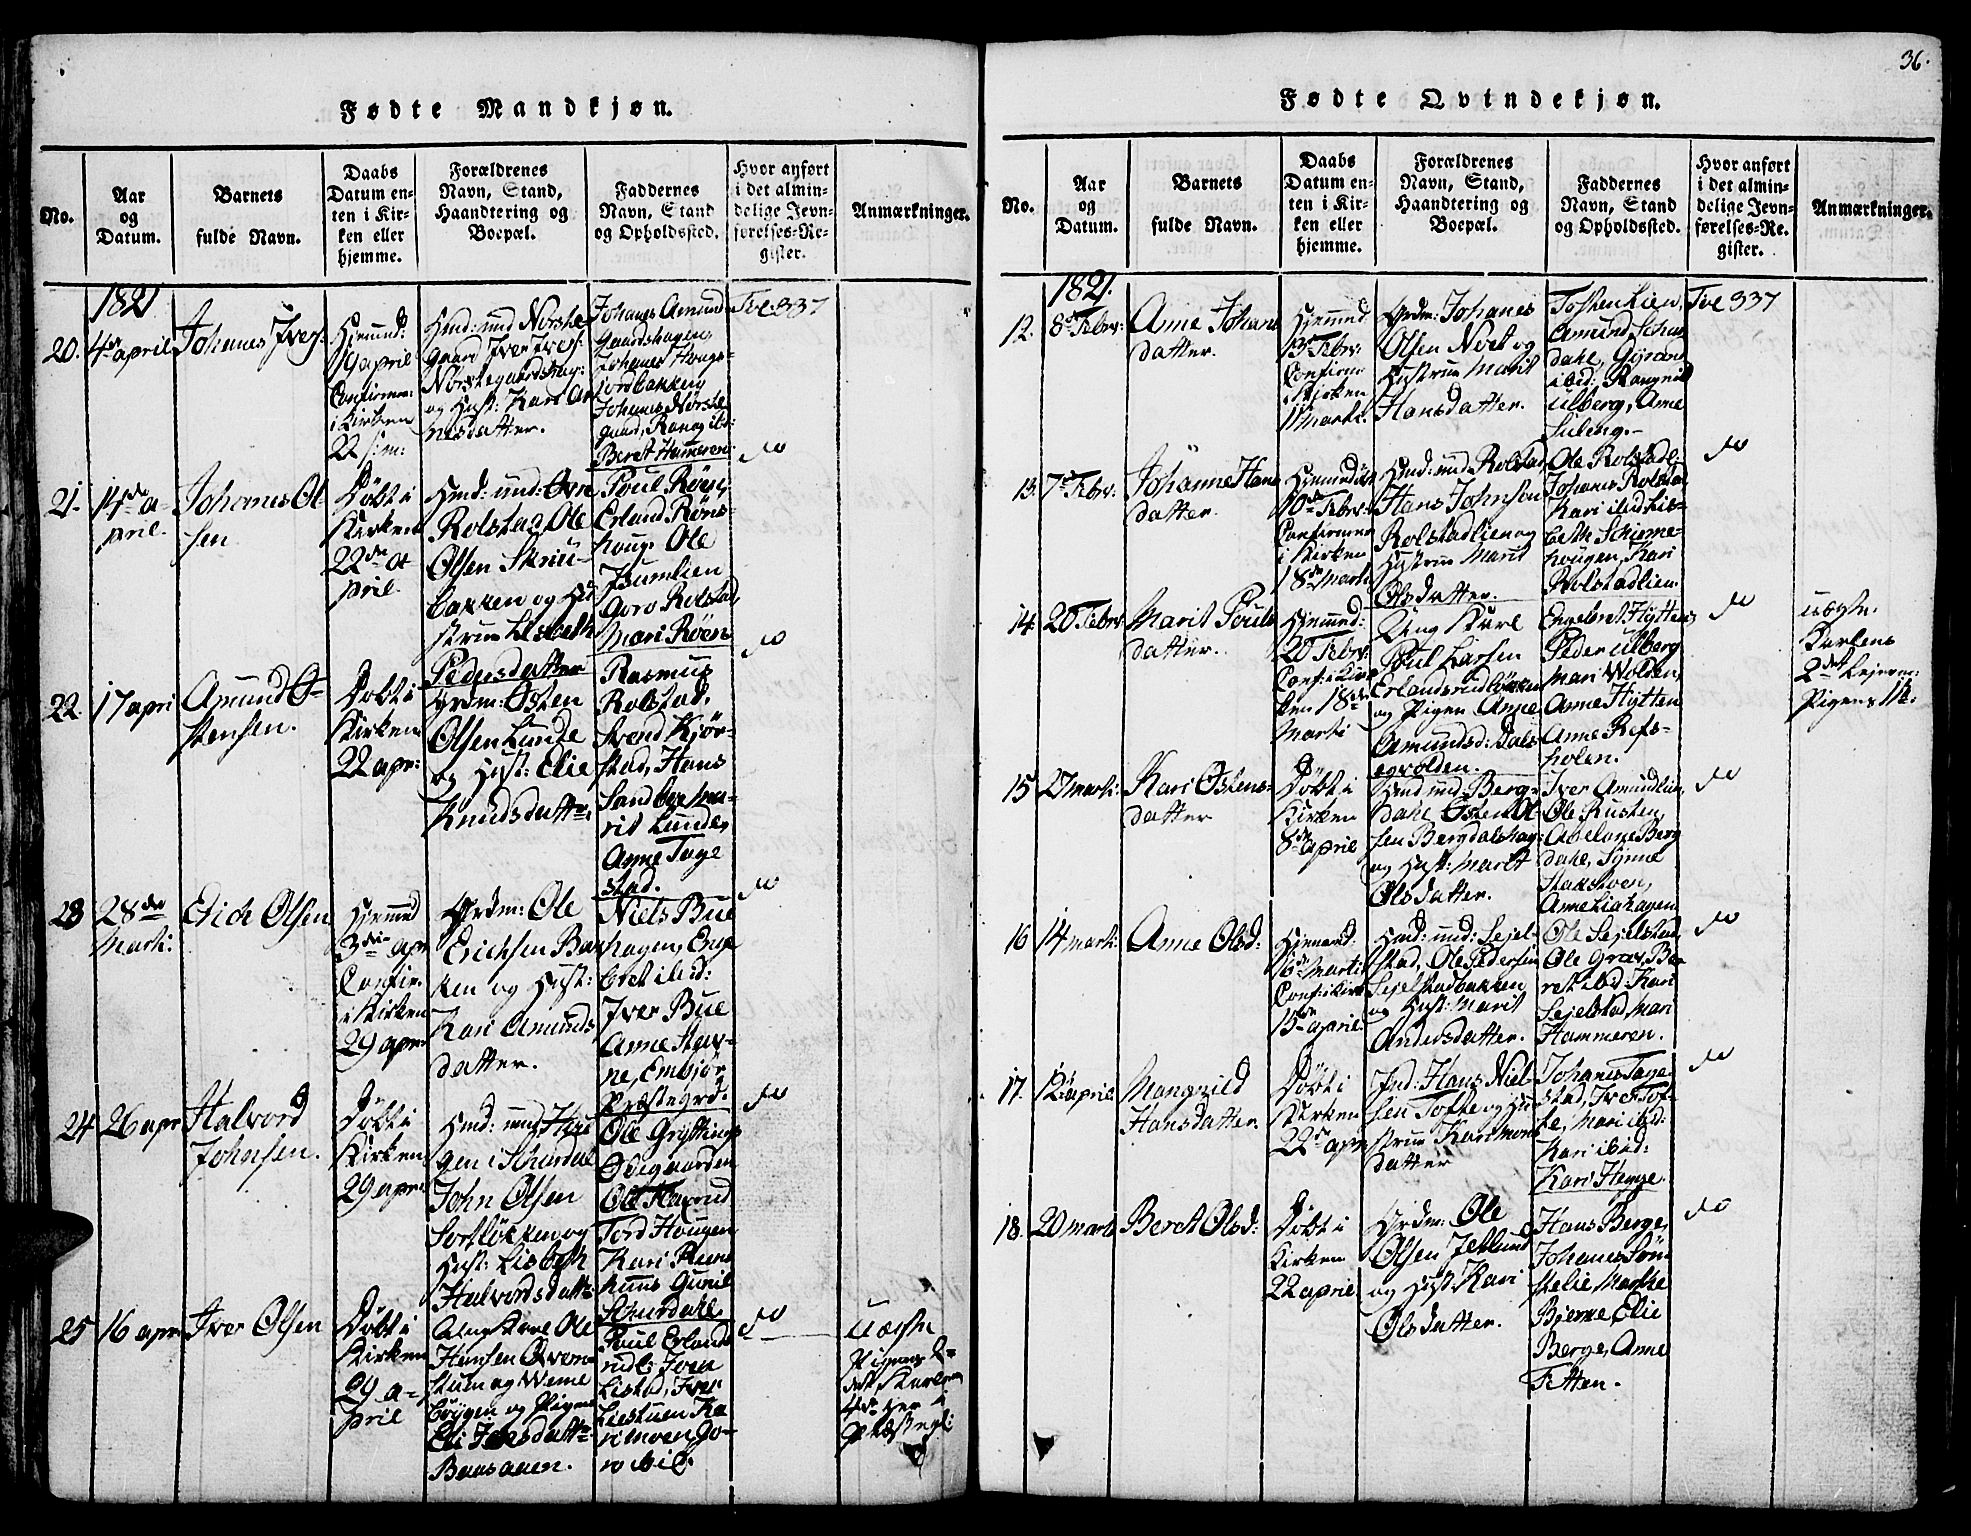 36.
Fødte Mandkjøn.
No.
Aar
og
Datum.
Barnets
fulde Navn.
Daabs
Datum en-
ten i Kir-
ken eller
hjemme.
Forældrenes
Navn, Stand,
Haandtering og
Boepæl.
Faddernes
Navn, Stand
og Opholdssted.
Hvor anført
i det almin-
delige Jevn-
førelses-Re-
gister.
Anmærkninger.
1821
20.
4de april
Johannes Ivers:
Hjemmed:
9 april
Confirm:
i Kirken
22
Norste
gaard Iver Ivers:
Norstegaardshag:
og Hust: Kari
datter.
Johannes Amund
Gaardshagen,
Johannes Houge-
Johannes Norste
gaard,
Beret Hammeren
Fol: 337
21.
14de a-
pril.
Johannes Ol
sen
Døbt i
Kirken
22de a
pril
Øvre
Rolstad Ole
Olsen Skriu-
bakken og Hu
strue Lisbeth
Pedersdatter
Poul Røen,
Erland Røns-
houg, Ole
Isumlien
Rolstad,
Mari Røen
do
22
17 apri
Amund Ø-
stensen.
Døbt i
Kirken
22 apr:
Grdm: Østen
Olsen Lunde
og Hust: Elie
Knudsdatter
Rasmus
Rolstad,
Svend Kjør-
stad, Hans
Sandboe Ma-
rit Lunde,
Anne Tage
stad.
do
23
28de
Marti:
Erich Olsen
Hjemmed
3die apr
Confir.
i Kirken
29 apr
Grdm: Ole
Erichsen Bak
ken og Hust:
Kari Amunds
datter.
Niels Bue
hagen, Enge
bret ibid:
Iver Bue
Anne Stav-
ne, Embjør
Præstegrd:
do
24
26 apr
Halvord
Johnsen.
Døbt i
Kirken
29 apri
gen i Schurdal
John Olsen
Sortløkken og
Hust: Lisbeth
Halvordsdatt:
Ole Grytting
Ødegaarden
Ole
Tord Hougen
Kari
Gunil
Schurdahl
do
25
16 apr
Iver Olsen
Døbt i
Kirken
29 a-
pril
Ungkarl Ole
Hansen Qvem-
stum og
og Pigen
Eli datter
Baasaaen.
Poul Erland
rud: Iver
Listad, Iver
Liestuen Ka
ri Moen Go-
ro ibid.
do
Uægte
Pigens
Karlens
Fødte Qvindekjøn.
No.
Aar
og
Datum.
Barnets
fulde Navn.
Daabs
Datum en-
ten i Kir-
ken eller
hjemme.
Forældrenes
Navn, Stand,
Haandtering og
Boepæl.
Faddernes
Navn, Stand
og Opholdssted.
Hvor anført
i det almin-
delige Jevn-
førelses-Re-
gister.
Anmærkninger.
1821.
12.
8de Febr:
Anne Johans
datter.
Hjemmed
13 Febr:
Confirm
i Kirken
11 Marti.
Grdm: Johanes
Olsen Noet og
Hustrue Marit
Hansdatter.
Tosten Lien,
Amund Schur
dahl,
ibid: Rangnil
Ulberg, Anne
Fol 337
13.
7de Febr:
Johanne Hans
datter.
Hjemmedøbt
10de Febr:
Confirmert
i Kirken
18de Marti
Rolstad
Hans Johnsen
Rolstadlien og
Hustrue Marit
Olsdatter.
Ole Rolstad:
Johanes Rolstad
Kari ibid Lis-
beth Schieme-
hougen, Kari
Rolstadlien
do
14.
20 Febr:
Marit Pouls
datter.
Hjemmed:
20 Febr:
Conf: i Kir
ken 18de
Marti
Ung Karl
Poul Larsen
Erlandsrudløkken
og Pigen Anne
Amundsd: Dals
egvolden.
Engebret Hytten,
Peder Ulberg
Mari Wolden,
Anne Hytten
Anne Refs-
holen.
do
uægte.
Karlens
2det Lejerm:
Pigens 1te.
15
27 mart:
Kari Østens-
datter
Døbt i
Kirken
8de april
Berg-
dahl Østen Ol
sen Bergdalshag:
og Hust: Marit
Olsdatter.
Iver Amundlien,
Ole Rusten,
Abelone Berg
dahl, Synne
Stakstoen,
Anne Liahagen
do
16
14 mart:
Anne Olsd:
Hjemmed:
16de Marti
Conf: i Kirk
15de april
Sejel-
stad, Ole Pedersen
Sejelstadbakken
og Hust: Marit
Andersdatter.
Ole Sejelstad,
Ole Grav, Be
ret ibid: Kari
Sejelstad, Mari
Hammeren.
do
17.
12te april
Mangnild
Hansdatter.
Døbt i
Kirken
22de apr
Hans Niel
sen Tofte og Hu
strue Kari Mons
datter
Johanes Tage
stad, Iver Tof-
te, Mari ibid:
Kari ibid:
Kari Hegge.
do
18.
20 marti
Beret Olsd:
Døbt i
Kirken
22 april
Grdm: Ole
Olsen Jetlund
og Hust: Kari
Olsdatter.
Hans Berge,
Johanes Søn
stelie Marthe
Bjerne Elie
Berge, Anne
Fetten.
do